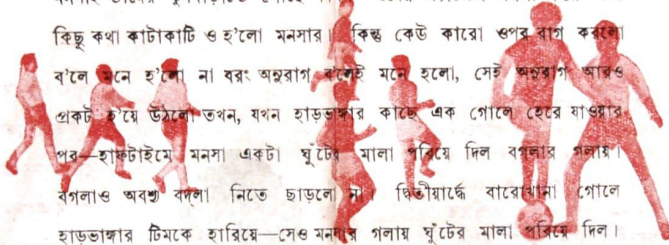 কিছু কথা কাটাকাটি ও হ'লো মনসার। কিন্তু কেউ কারো ওপর রাগ করলো
ব'লে মনে হ'লো না বরং অনুরাগ ব'লেই মনে হলো, সেই অনুরাগ আরও
প্রকট হ'য়ে উঠলো তখন, যখন হাড়ভাঙ্গার কাছে এক গোলে হেরে যাওয়ার
পর—হাফটাইমে মনসা একটা ঘুঁটের মালা পরিয়ে দিল বগলার গলায়।
বগলাও অবশ্য বদলা নিতে ছাড়লো না। দ্বিতীয়ার্দ্ধে বারোখানা গোলে
হাড়ভাঙ্গার টিমকে হারিয়ে—সেও মনসার গলায় ঘুঁটের মালা পরিয়ে দিল।